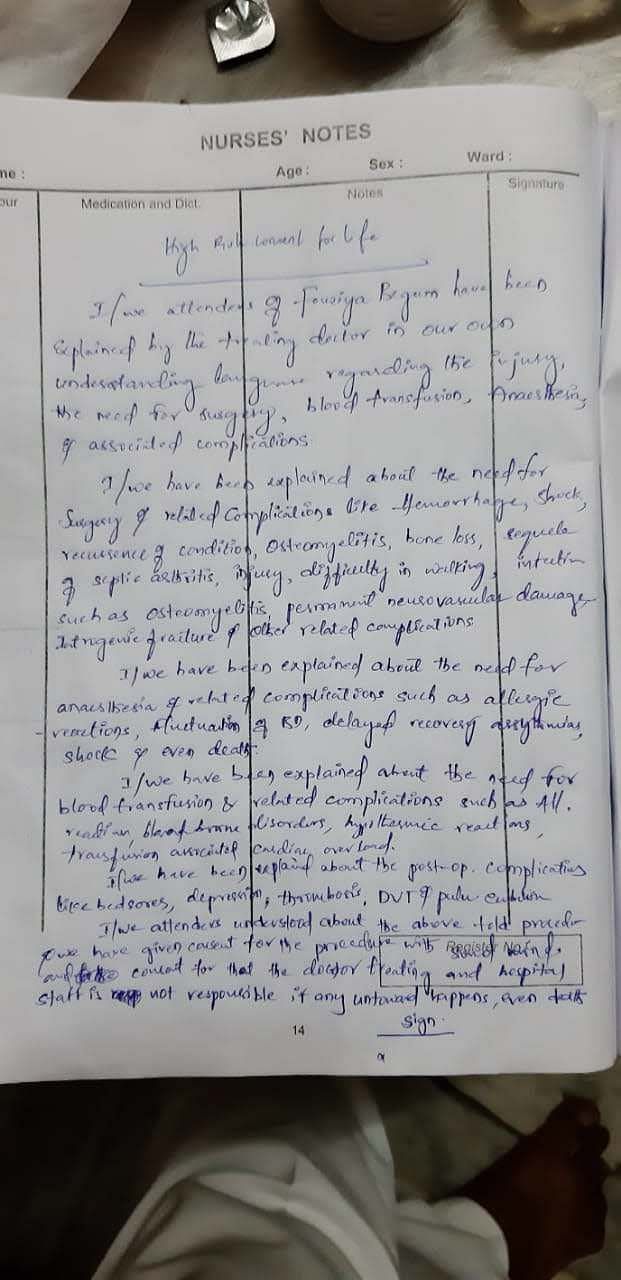 NURSES' NOTES
me : Age : Sex : Ward :
our Medication and Dict. Notes Signature
High Risk consent for life
I/we attenders of Fousiya Begum have been
explained by the treating doctor in our own
understanding language regarding the injury,
the need for surgery, blood transfusion, Anaesthesia,
& associated complications
I/we have been explained about the need for
Surgery & related Complications like Hemorrhage, Shock,
recurrence of condition, Osteomyelitis, bone loss, sequela
of septic arthritis, injury, difficulty in walking, infection
such as osteomyelitis, permanent neurovascular damage,
Iatrogenic fracture & other related complications
I/we have been explained about the need for
anaesthesia & related complications such as allergic
reactions, fluctuation of BP, delayed recovery arrythmias,
shock & even death.
I/we have been explained about the need for
blood transfusion & related complications such as All.
reaction, blood borne disorders, hypothermic reactions,
transfusion associated cardiac overload.
I/we have been explaind about the post-op. complication
like bedsores, depression, thrombosis, DVT & pulm embolism
I/we attenders understood about the above told procedu
& we have given consent for the procedure with sound mind.
Register No.
and consent for that the doctor treating and hospital
staff is not responsible if any untoward happens, even death
Sign
14
x